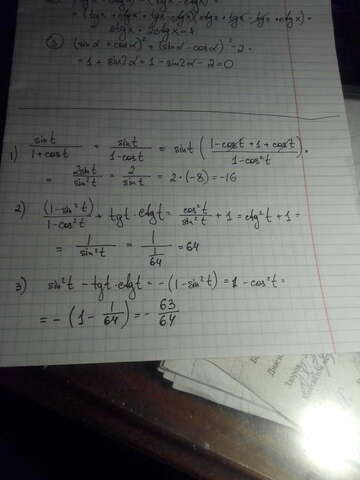 = (tgα + ctgα - tgα - ctgα)(ctgα + tgα - tgα + ctgα) =
2tgα · 2ctgα = 4
3) (sinα + cosα)² + (sinα - cosα)² - 2 =
= 1 + sin2α + 1 - sin2α - 2 = 0
1) sint/(1+cost) + sint/(1-cost) = sint ((1-cost+1+cost)/(1-cos²t)) =
= 2sint/sin²t = 2/sint = 2·(-8) = -16
2) (1-sin²t)/(1-cos²t) + tgt·ctgt = cos²t/sin²t + 1 = ctg²t + 1 =
= 1/sin²t = 1/(1/64) = 64
3) sin²t - tgt·ctgt = -(1-sin²t) = 1 - cos²t =
= -(1 - 1/64) = - 63/64